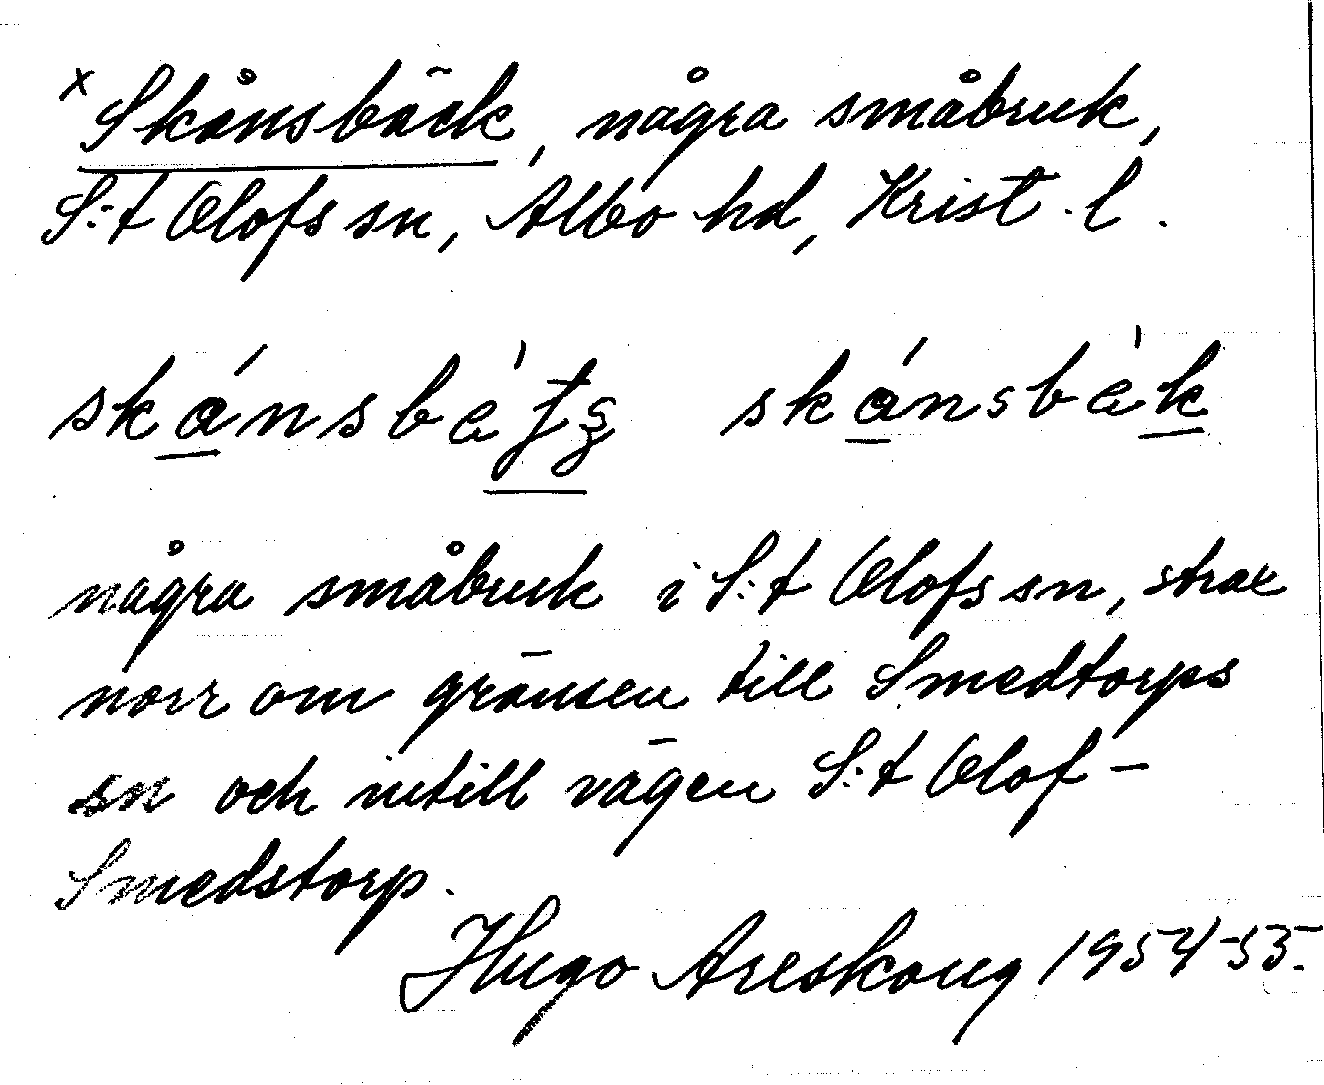 x Skånsbäck, några småbruk,
S:t Olofs sn, Albo hd, Krist. l.
skánsbè skánsbèk
några småbruk i S:t Olofs sn, strax
norr om gränsen till Smedtorps
sn och intill vägen S:t Olof -
Smedstorp.
Hugo Areskoug 1954-55.